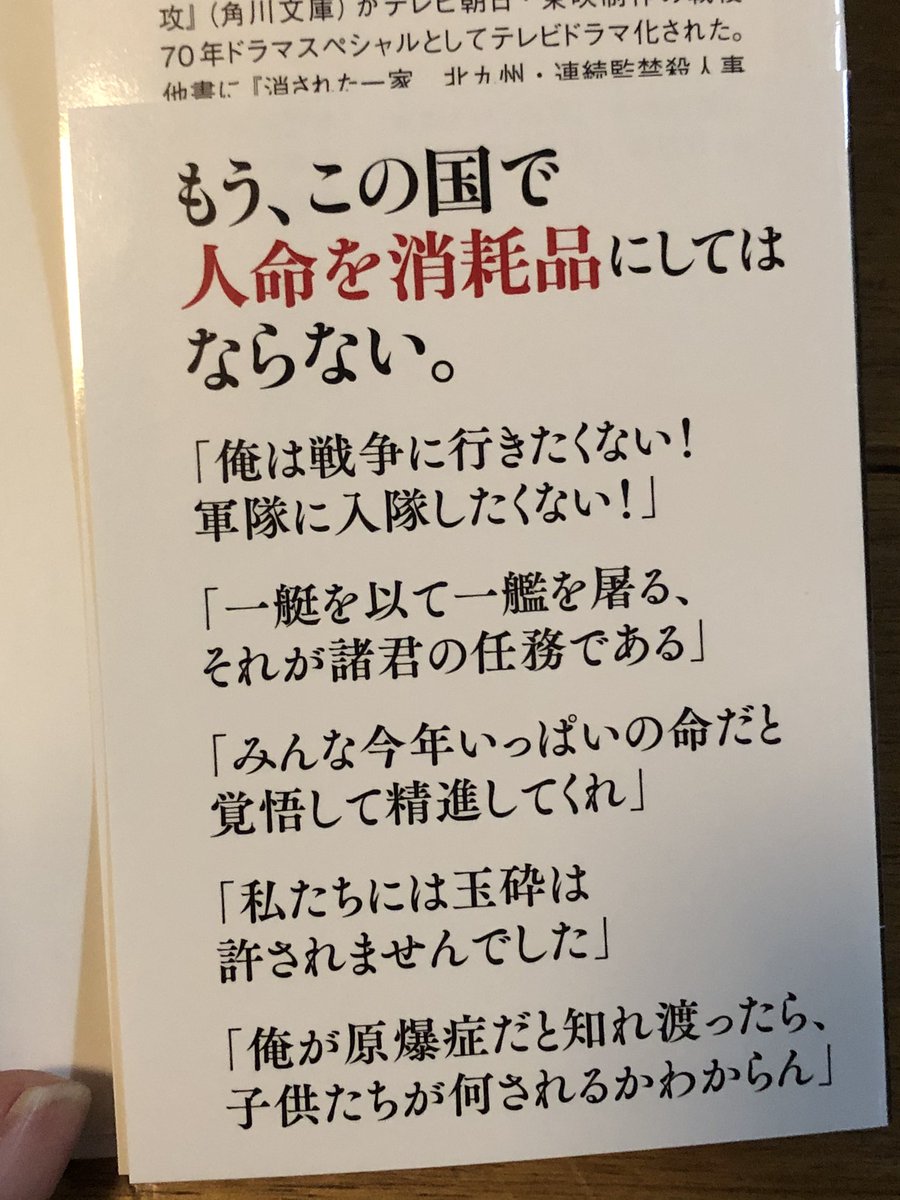 攻』(角川文庫)がテレビ朝日・東映制作の戦後
70年ドラマスペシャルとしてテレビドラマ化された。
他書に『消された一家 北九州・連続監禁殺人事
もう、この国で
人命を消耗品にしては
ならない。
「俺は戦争に行きたくない!
軍隊に入隊したくない!」
「一艇を以て一艦を屠る、
それが諸君の任務である」
「みんな今年いっぱいの命だと
覚悟して精進してくれ」
「私たちには玉砕は
許されませんでした」
「俺が原爆症だと知れ渡ったら、
子供たちが何されるかわからん」